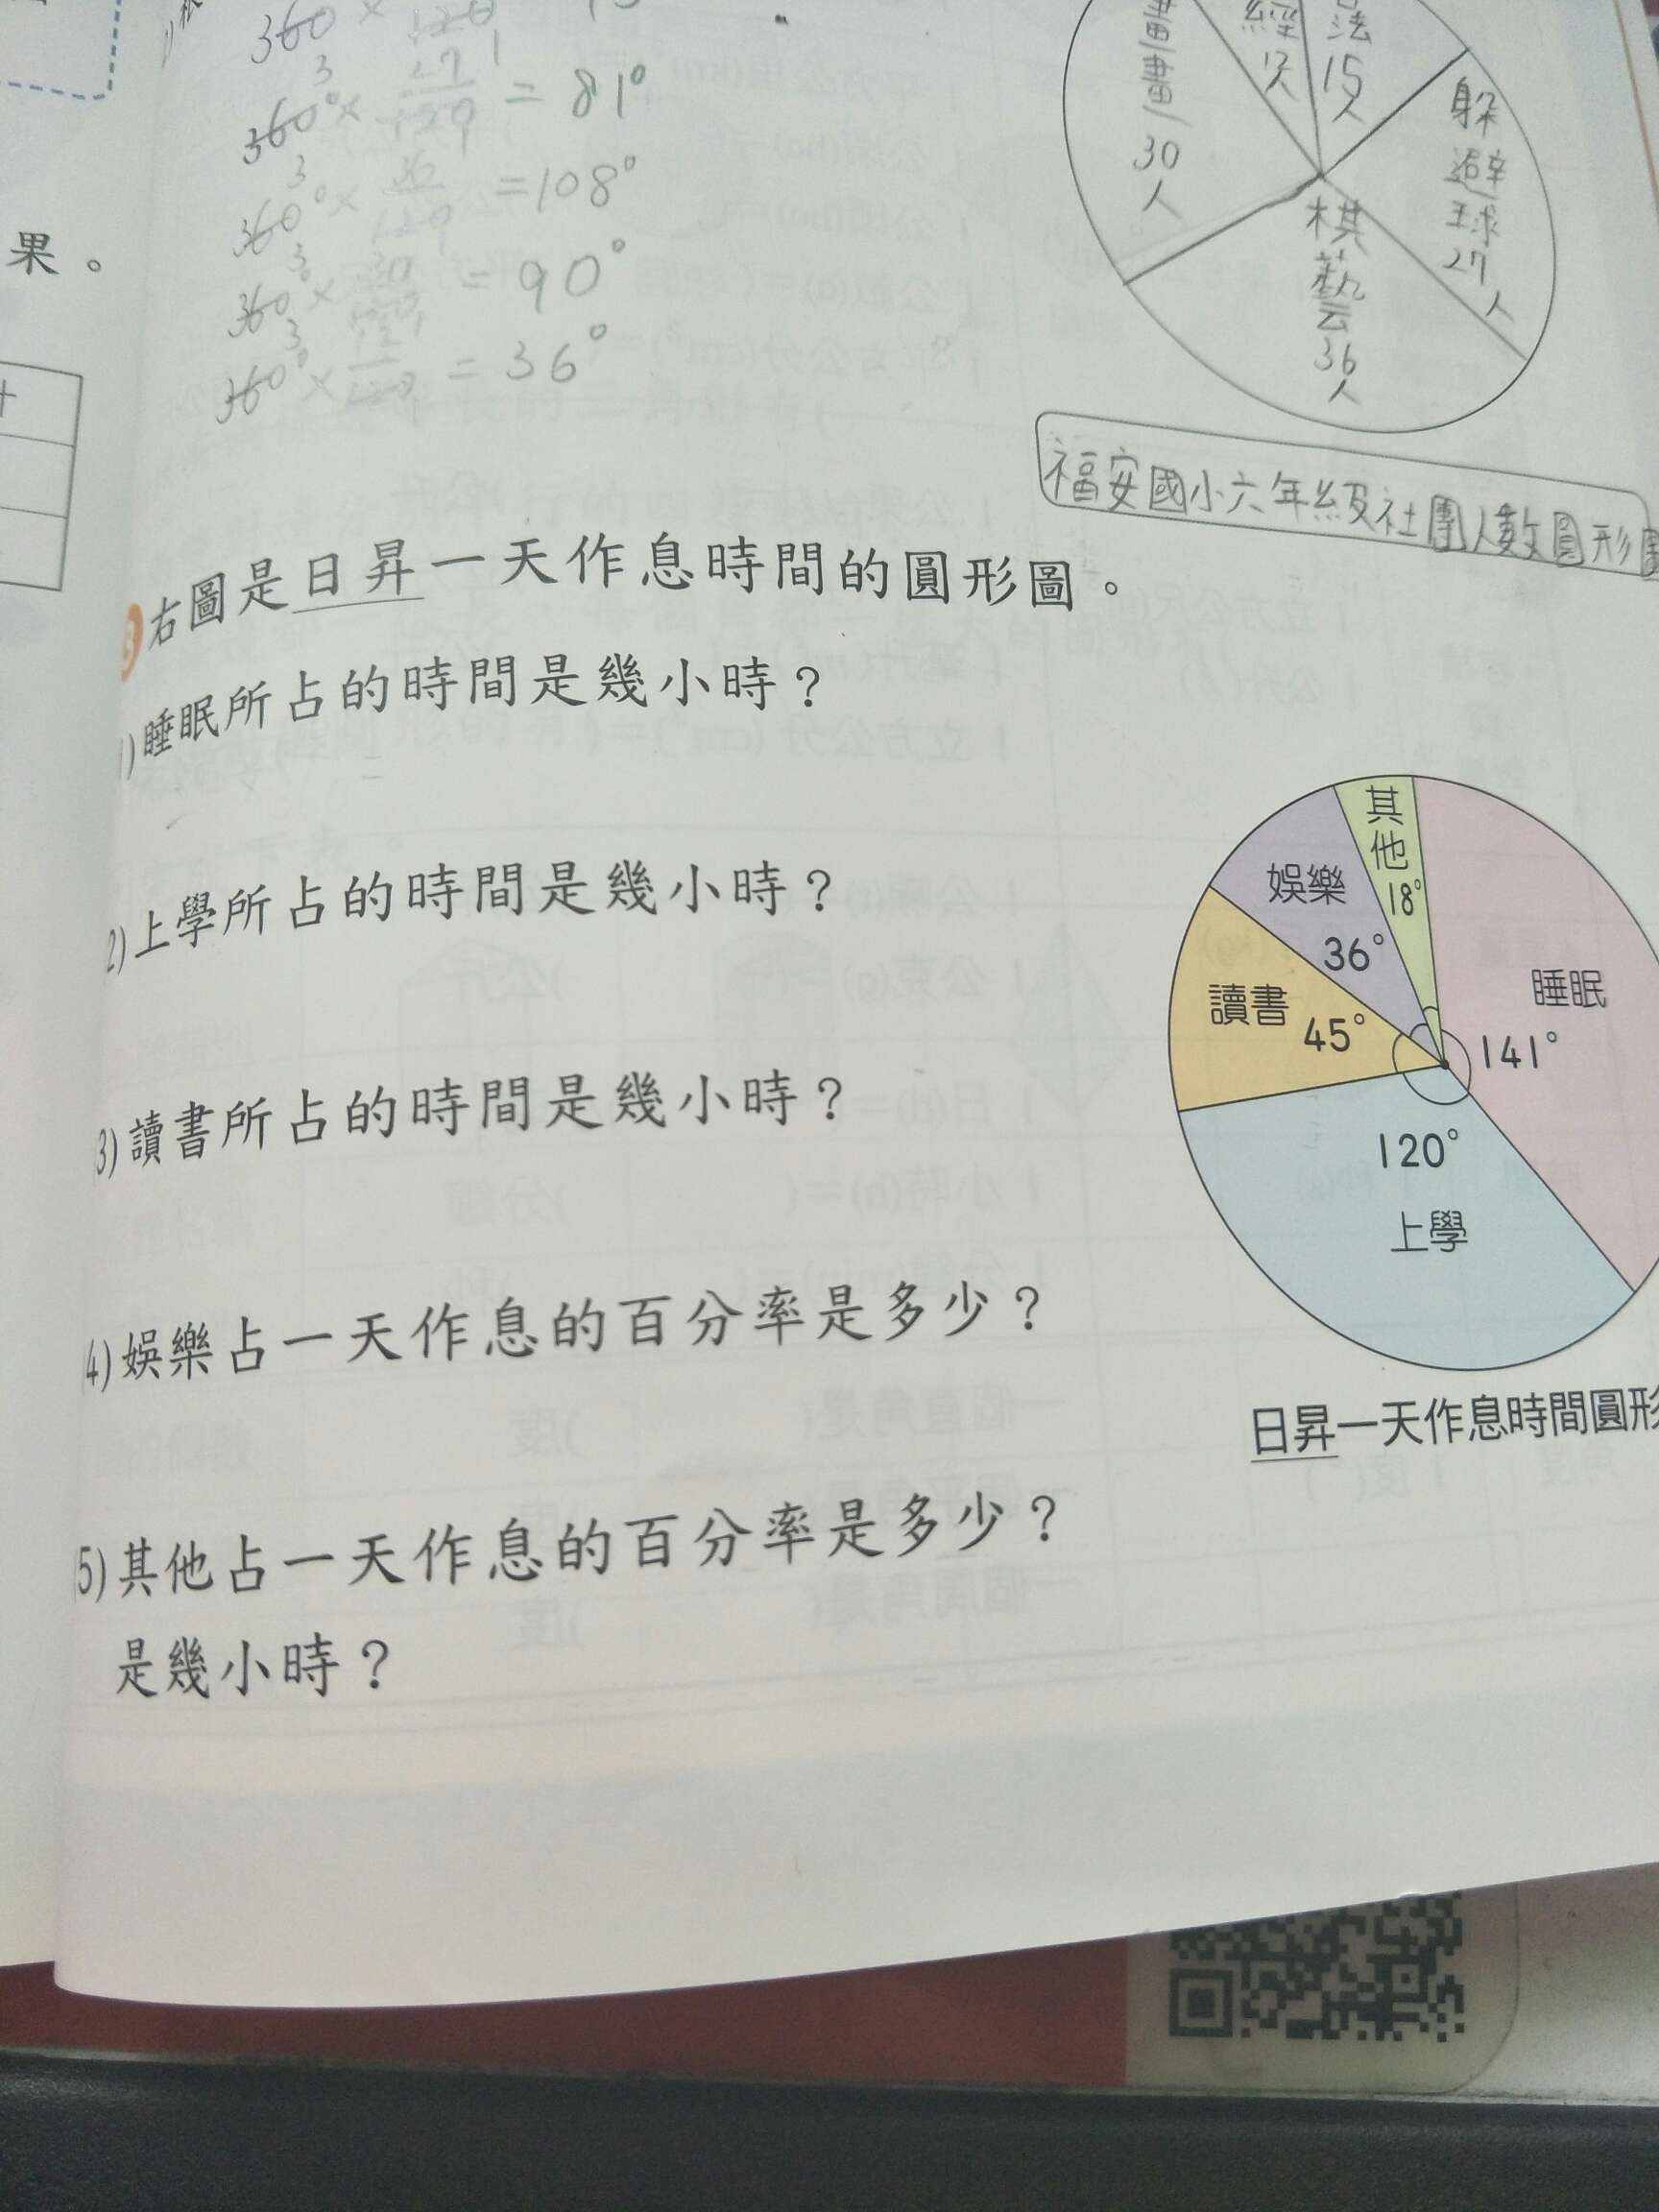 360° × 27/120 = 81°
360° × 36/120 = 108°
360° × 30/120 = 90°
360° × 12/120 = 36°
果。
30人
15人
躲避球27人
棋藝36人
福安國小六年級社團人數圓形圖
右圖是日昇一天作息時間的圓形圖。
1)睡眠所占的時間是幾小時?
2)上學所占的時間是幾小時?
3)讀書所占的時間是幾小時?
4)娛樂占一天作息的百分率是多少?
5)其他占一天作息的百分率是多少?
是幾小時?
其他
18°
娛樂
36°
讀書 45°
睡眠
141°
120°
上學
日昇一天作息時間圓形